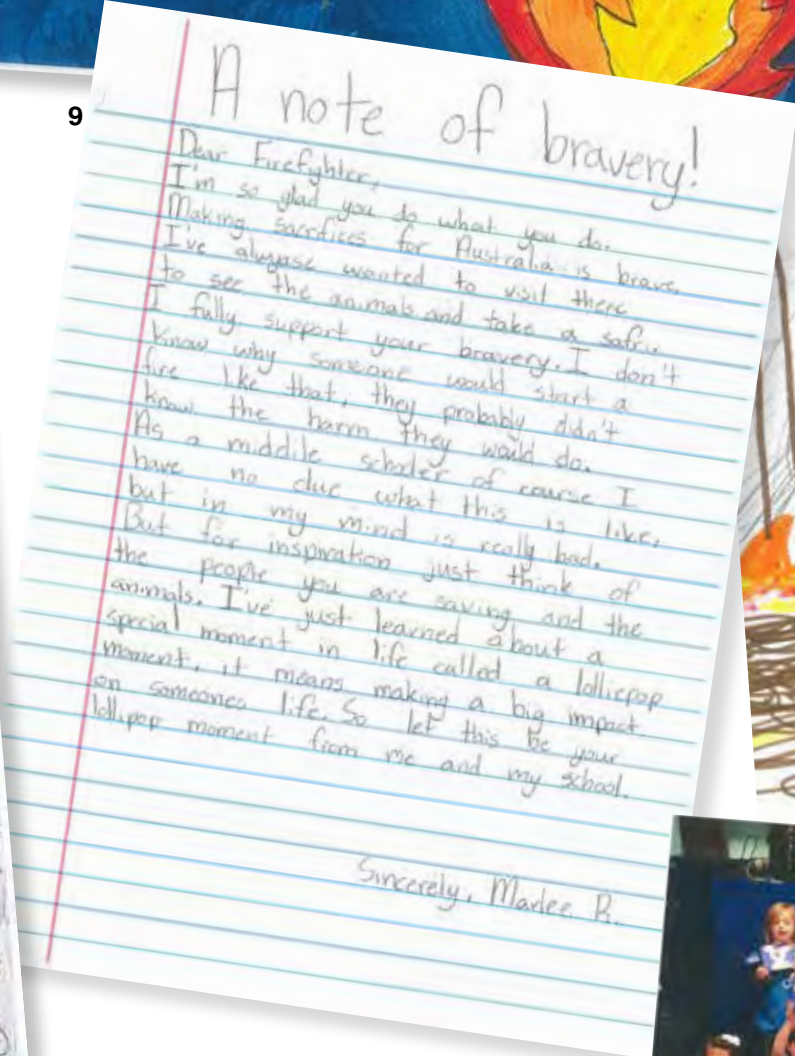 9
A note of bravery!
Dear Firefyhter,
I'm so glad you do what you do.
Making sacrifices for Australia is brave.
I've alwyase wanted to visit there
to see the animals and take a safri.
I fully support your bravery. I don't
know why someone would start a
fire like that, they probably didn't
know the harm they would do.
As a middile schooler of course I
have no clue what this is like,
but in my mind is really bad.
But for inspiration just think of
the people you are saving and the
animals. I've just learned about a
special moment in life called a lolliepop
moment, it means making a big impact
on someones life. So let this be your
lollipop moment from me and my school.
Sincerely, Marlee R.